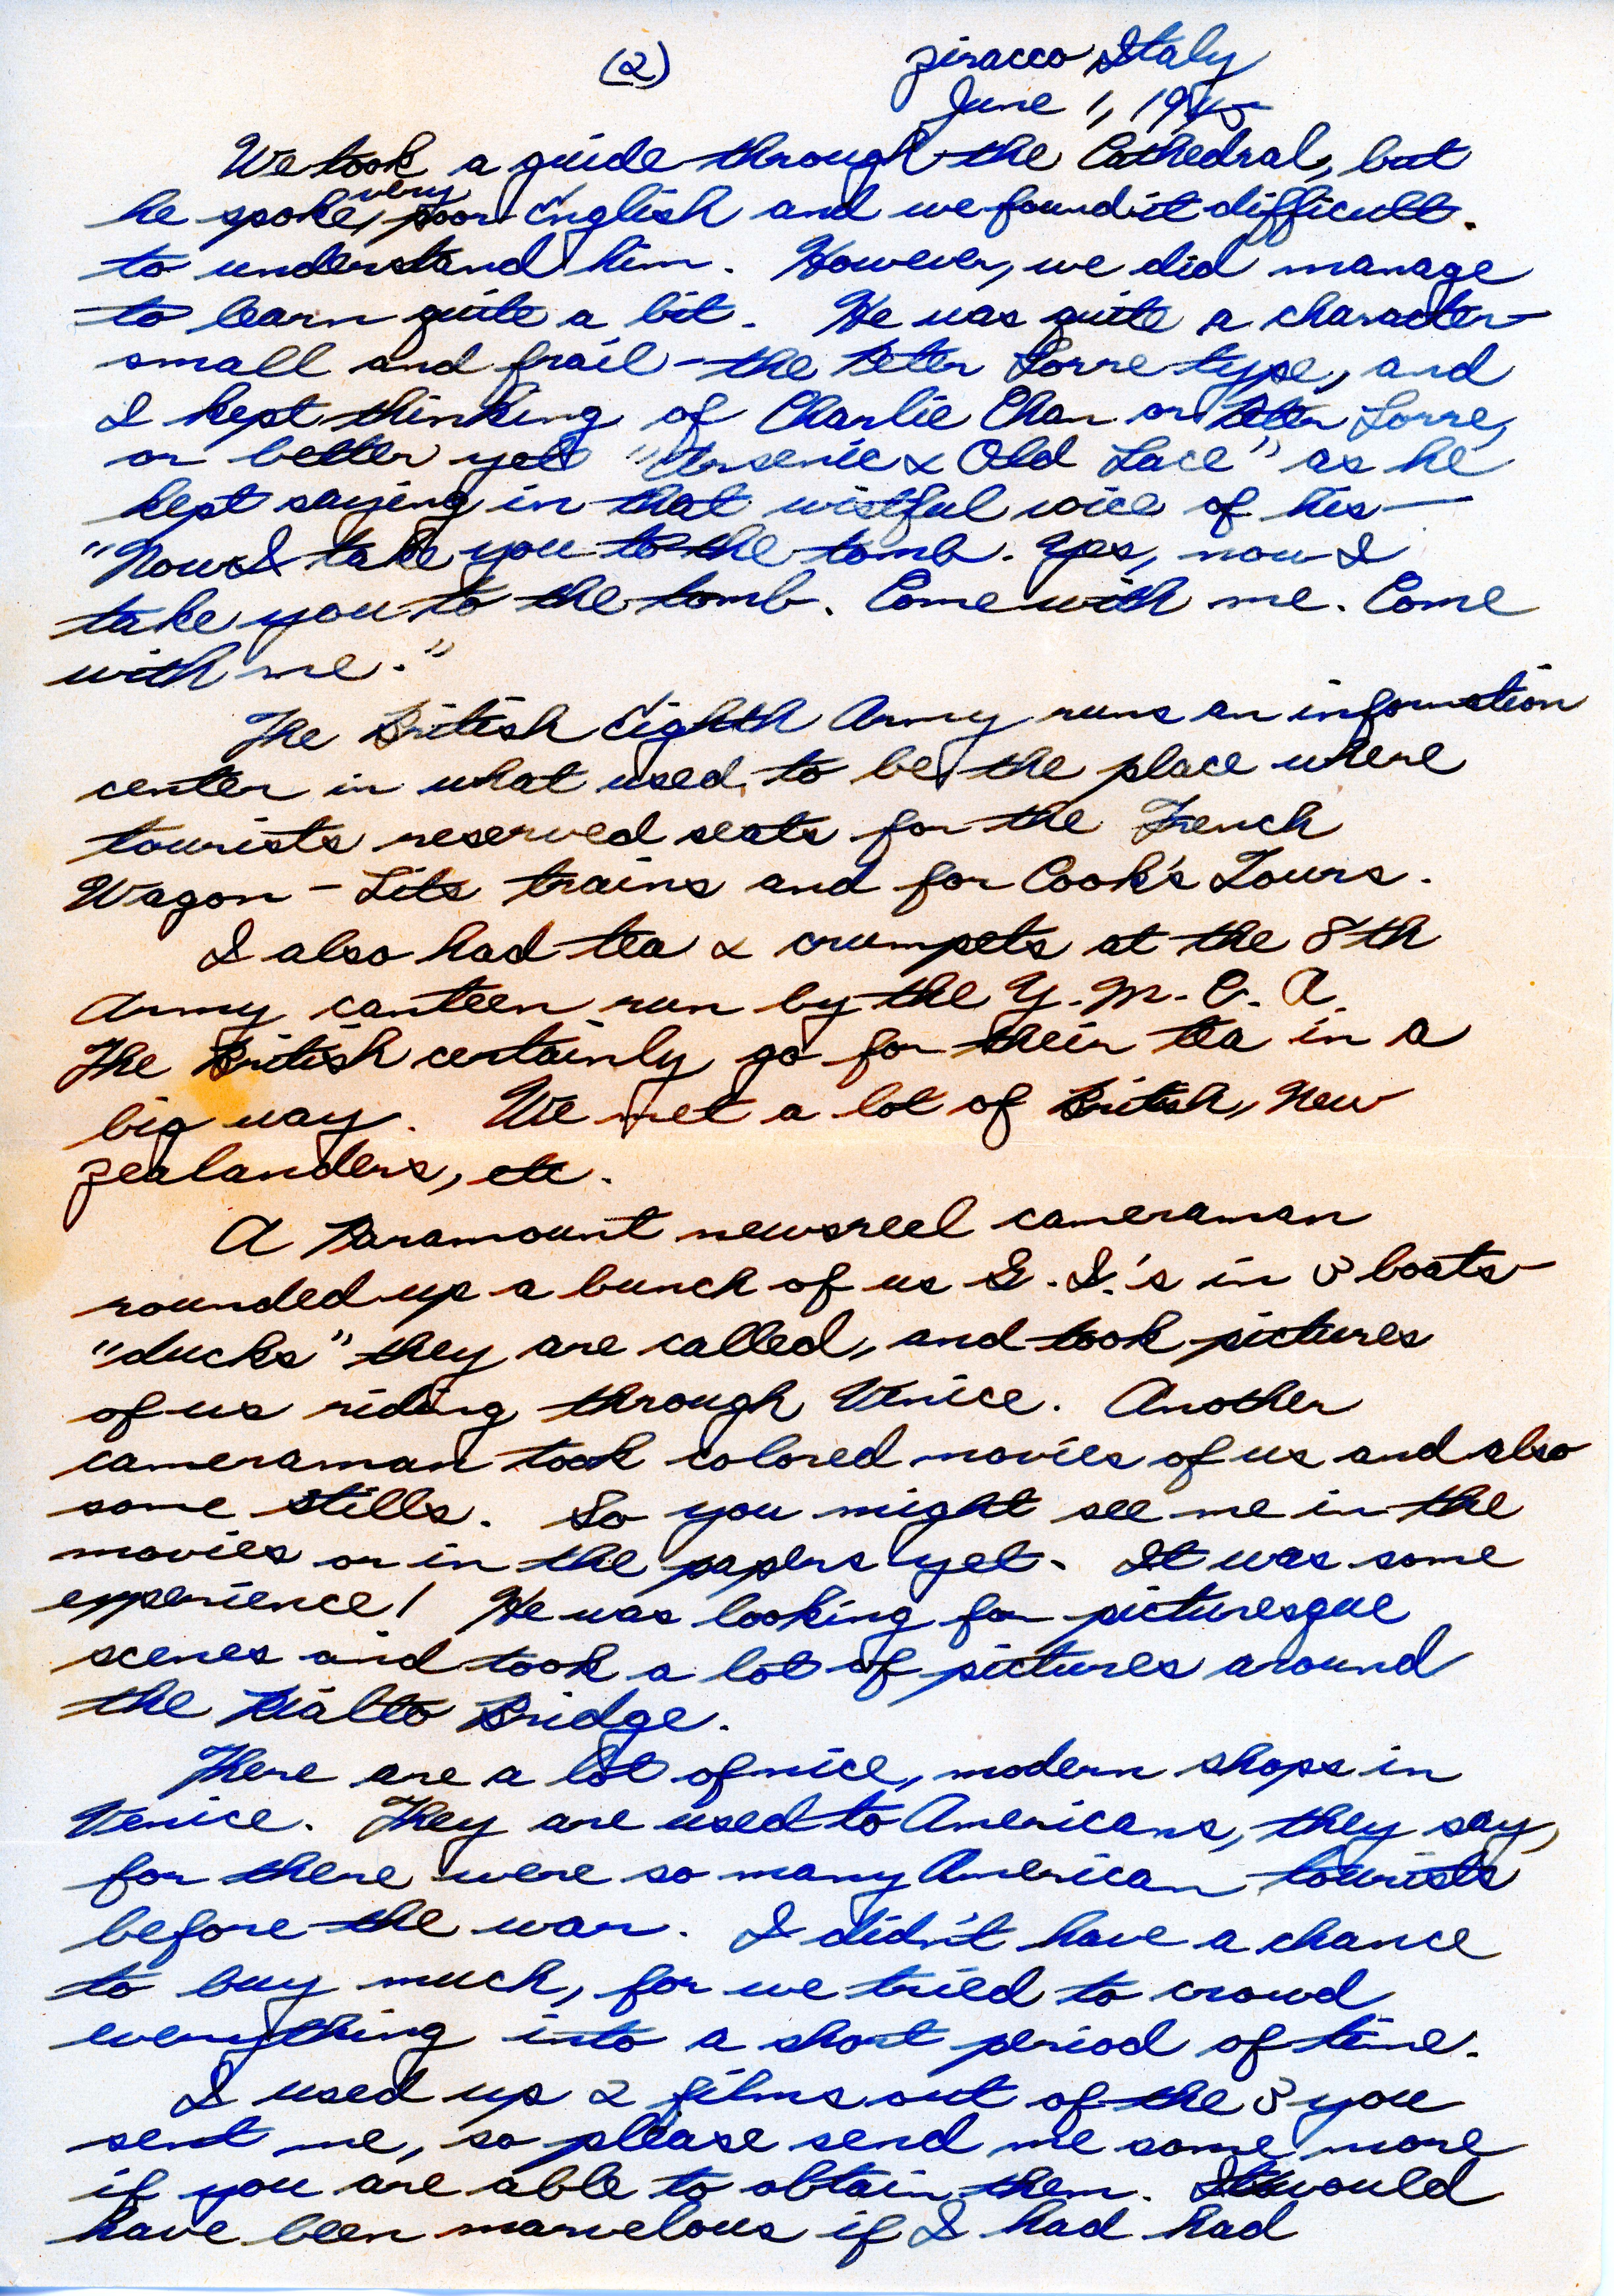 (2) Ziracco Italy
June 1, 1945
We took a guide through the Cathedral, but
he spoke very poor English and we found it difficult.
to understand him. However, we did manage
to learn quite a bit. He was quite a character—
small and frail – the Peter Lorre type, and
I kept thinking of Charlie Chan or Peter Lorre,
or better yet "Arsenic & Old Lace" as he
kept saying in that wistful voice of his—
"Now I take you to the tomb. Yes, now I
take you to the tomb. Come with me. Come
with me."
The British Eighth Army runs an information
center in what used to be the place where
tourists reserved seats for the French
Wagon-Lits trains and for Cook's Tours.
I also had tea & crumpets at the 8th
Army canteen run by the Y.M.C.A.
The British certainly go for their tea in a
big way. We met a lot of British, New
Zealanders, etc.
A Paramount newsreel cameraman
rounded up a bunch of us G.I.'s in 3 boats—
"ducks" they are called, and took pictures
of us riding through Venice. Another
cameraman took colored movies of us and also
some stills. So you might see me in the
movies or in the papers yet. It was some
experience! He was looking for picturesque
scenes and took a lot of pictures around
the Rialto Bridge.
There are a lot of nice, modern shops in
Venice. They are used to Americans, they say,
for there were so many American tourists
before the war. I didn't have a chance
to buy much, for we tried to crowd
everything into a short period of time.
I used up 2 films out of the 3 you
sent me, so please send me some more
if you are able to obtain them. It would
have been marvelous if I had had